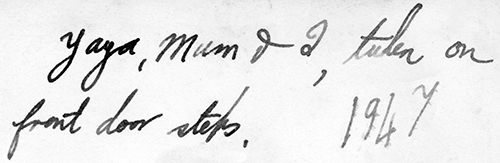 Yaya, Mum & I, taken on
front door steps. 1947